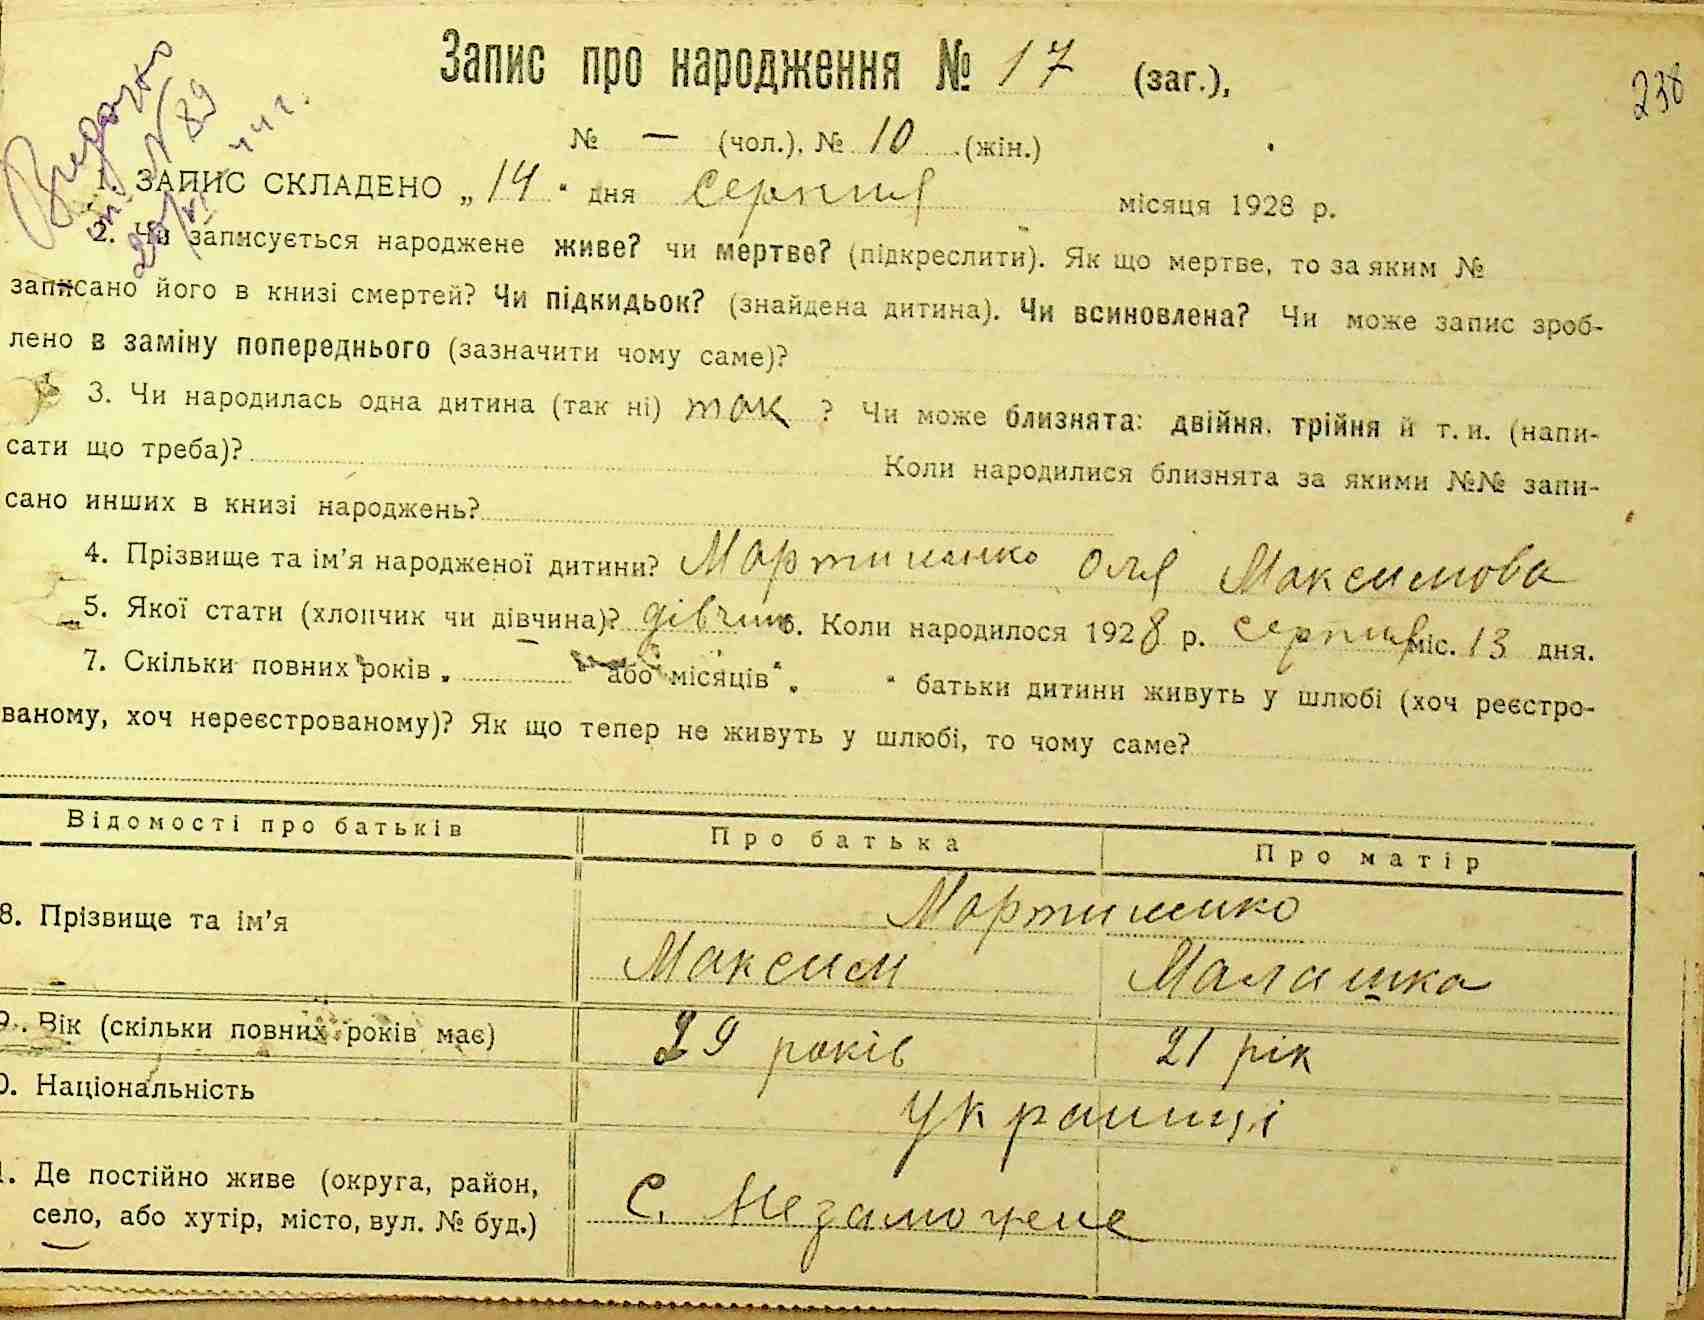 238
Видано
N 89
44 г.
Запис про народження № 17 (заг.),
№ — (чол.), № 10 (жін.)
1. ЗАПИС СКЛАДЕНО „14“ дня серпня місяця 1928 р.
2. Чи записується народжене живе? чи мертве? (підкреслити). Як що мертве, то за яким №
записано його в книзі смертей? Чи підкидьок? (знайдена дитина). Чи всиновлена? Чи може запис зроб-
лено в заміну попереднього (зазначити чому саме)?
3. Чи народилась одна дитина (так ні) так ? Чи може близнята: двійня, трійня й т. и. (напи-
сати що треба)? Коли народилися близнята за якими №№ запи-
сано инших в книзі народжень?
4. Прізвище та ім’я народженої дитини? Мартиненко Оля Максимова
5. Якої стати (хлопчик чи дівчина)? дівчин 6. Коли народилося 1928 р. серпня міс. 13 дня.
7. Скільки повних років „ або місяців“ „ “ батьки дитини живуть у шлюбі (хоч реєстро-
ваному, хоч нереєстрованому)? Як що тепер не живуть у шлюбі, то чому саме?
Відомості про батьків Про батька Про матір
8. Прізвище та ім’я Мартиненко
Максим Малашка
9. Вік (скільки повних років має) 29 років 21 рік
0. Національність Українці
1. Де постійно живе (округа, район,
село, або хутір, місто, вул. № буд.) С. Незаможене